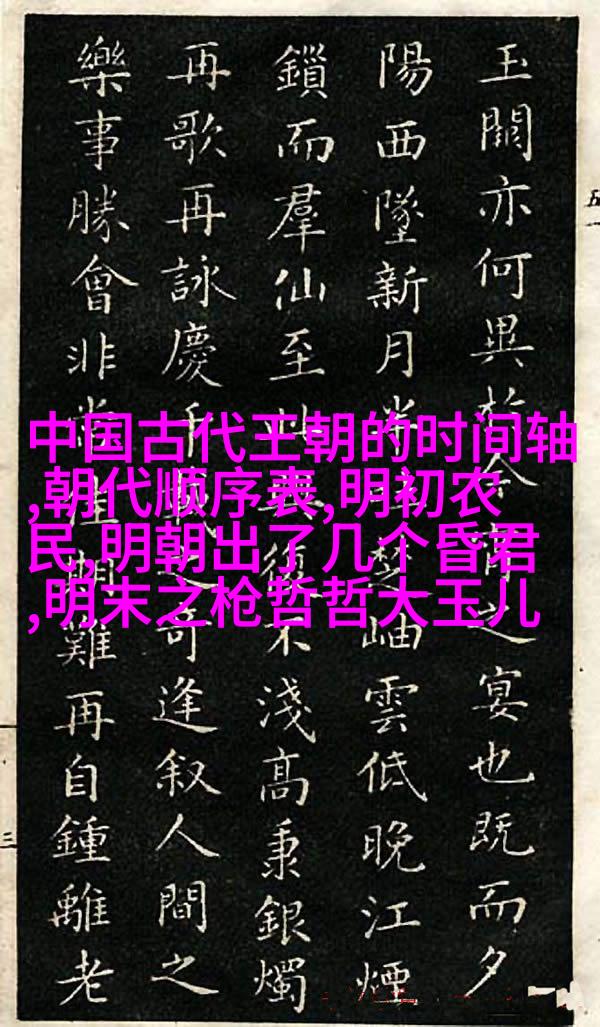 玉闕亦何異於今宵之宴也既而夕
陽西墜新月半楚岫雲低晚江煙
鎖而羣仙至興復不淺高秉銀燭
再歌再詠慶千之奇逢叙人間之
樂事勝會非難再自鍾離老
中国古代王朝的时间轴
,朝代顺序表,明初农
民,明朝出了几个昏君
,明末之枪哲哲大玉儿